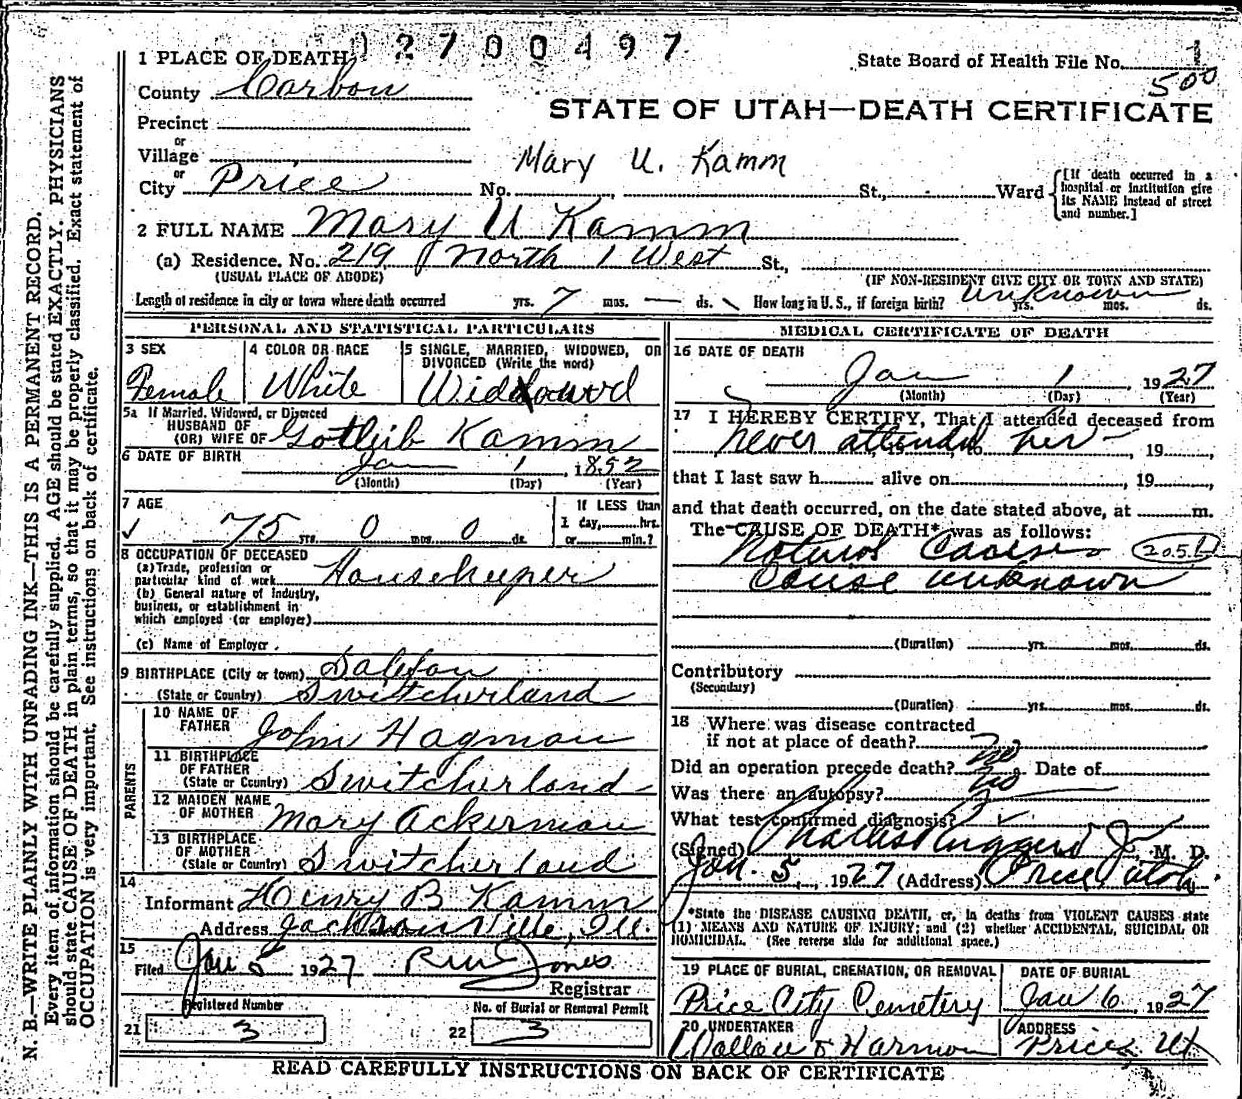 02700497
1 PLACE OF DEATH
State Board of Health File No. 1
500
County Carbon
STATE OF UTAH—DEATH CERTIFICATE
Precinct
or
Village
Mary U. Kamm
or
City Price No. St., Ward
[If death occurred in a hospital or institution give its NAME instead of street and number.]
2 FULL NAME Mary U Kamm
(a) Residence. No. 219 North 1 West St.,
(USUAL PLACE OF ABODE) (IF NON-RESIDENT GIVE CITY OR TOWN AND STATE)
Length of residence in city or town where death occurred yrs. 7 mos. — ds. How long in U.S., if foreign birth? Unknown yrs. mos. ds.
PERSONAL AND STATISTICAL PARTICULARS
3 SEX
Female
4 COLOR OR RACE
White
5 SINGLE, MARRIED, WIDOWED, OR
DIVORCED (Write the word)
5a If Married, Widowed, or Divorced
HUSBAND OF
(OR) WIFE OF Gotleib Kamm
6 DATE OF BIRTH Jan 1, 1852
(Month) (Day) (Year)
7 AGE
75 yrs. 0 mos. 0 ds.
If LESS than
1 day, hrs.
or min.?
8 OCCUPATION OF DECEASED
(a) Trade, profession or
particular kind of work Housekeeper
(b) General nature of Industry,
business, or establishment in
which employed (or employer)
(c) Name of Employer
9 BIRTHPLACE (City or town)
(State or Country) Switcherland
PARENTS
10 NAME OF
FATHER John Hagman
11 BIRTHPLACE
OF FATHER
(State or Country) Switcherland
12 MAIDEN NAME
OF MOTHER Mary Ackerman
13 BIRTHPLACE
OF MOTHER
(State or Country) Switcherland
14
Informant Henry B Kamm
Address Jacksonville, Ill.
15
Filed Jan 5 1927 Jones
Registrar
Registered Number
21 3
No. of Burial or Removal Permit
22 3
MEDICAL CERTIFICATE OF DEATH
16 DATE OF DEATH
Jan 1, 1927
(Month) (Day) (Year)
17 I HEREBY CERTIFY, That I attended deceased from
never attended her — , 19 ,
that I last saw h alive on , 19 ,
and that death occurred, on the date stated above, at m.
The CAUSE OF DEATH* was as follows:
Natural Causes
Cause unknown
(Duration) yrs. mos. ds.
Contributory
(Secondary)
(Duration) yrs. mos. ds.
18 Where was disease contracted
if not at place of death?
Did an operation precede death? no Date of
Was there an autopsy? no
What test confirmed diagnosis?
(Signed) Jr M. D.
Jan. 5, 1927 (Address) Price Utah.
*State the DISEASE CAUSING DEATH, or, in deaths from VIOLENT CAUSES state
(1) MEANS AND NATURE OF INJURY; and (2) whether ACCIDENTAL, SUICIDAL OR
HOMICIDAL. (See reverse side for additional space.)
19 PLACE OF BURIAL, CREMATION, OR REMOVAL
Price City Cemetery
DATE OF BURIAL
Jan 6, 1927
20 UNDERTAKER
Wallace & Harmon
ADDRESS
Price, Ut
READ CAREFULLY INSTRUCTIONS ON BACK OF CERTIFICATE
N. B.—WRITE PLAINLY WITH UNFADING INK—THIS IS A PERMANENT RECORD.
Every item of information should be carefully supplied. AGE should be stated EXACTLY. PHYSICIANS
should state CAUSE OF DEATH in plain terms, so that it may be properly classified. Exact statement of
OCCUPATION is very important. See instructions on back of certificate.